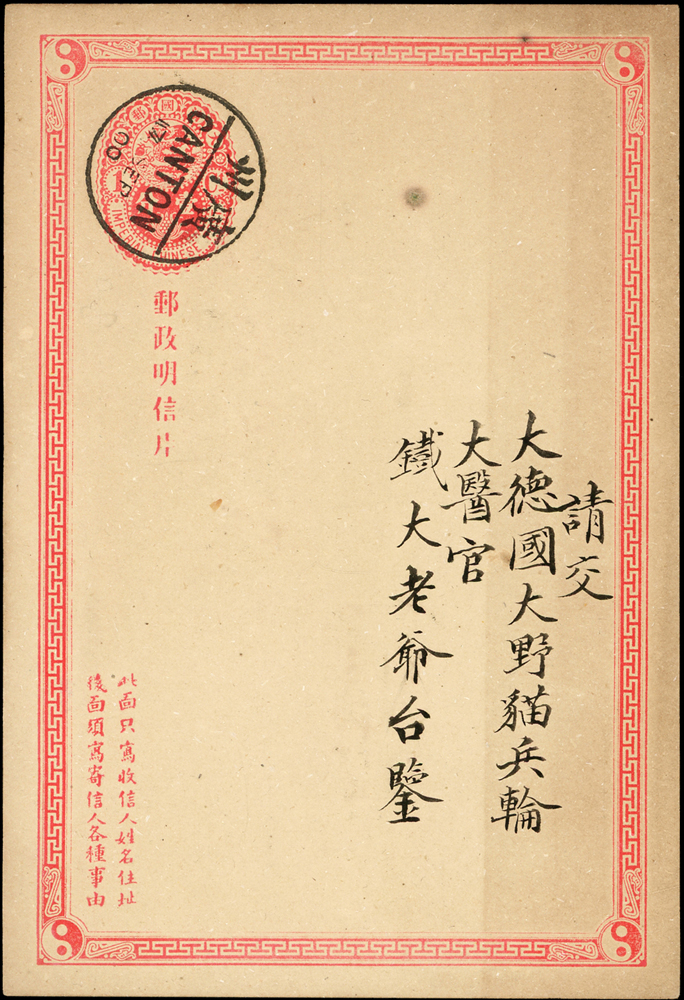 請交
大德國大野貓兵輪
大醫官
鐵大老爺台鑒
廣州
CANTON
17 SEP
00
國郵
IMPERIAL CHINESE
郵政明信片
此面只寫收信人姓名住址
後面須寫寄信人各種事由